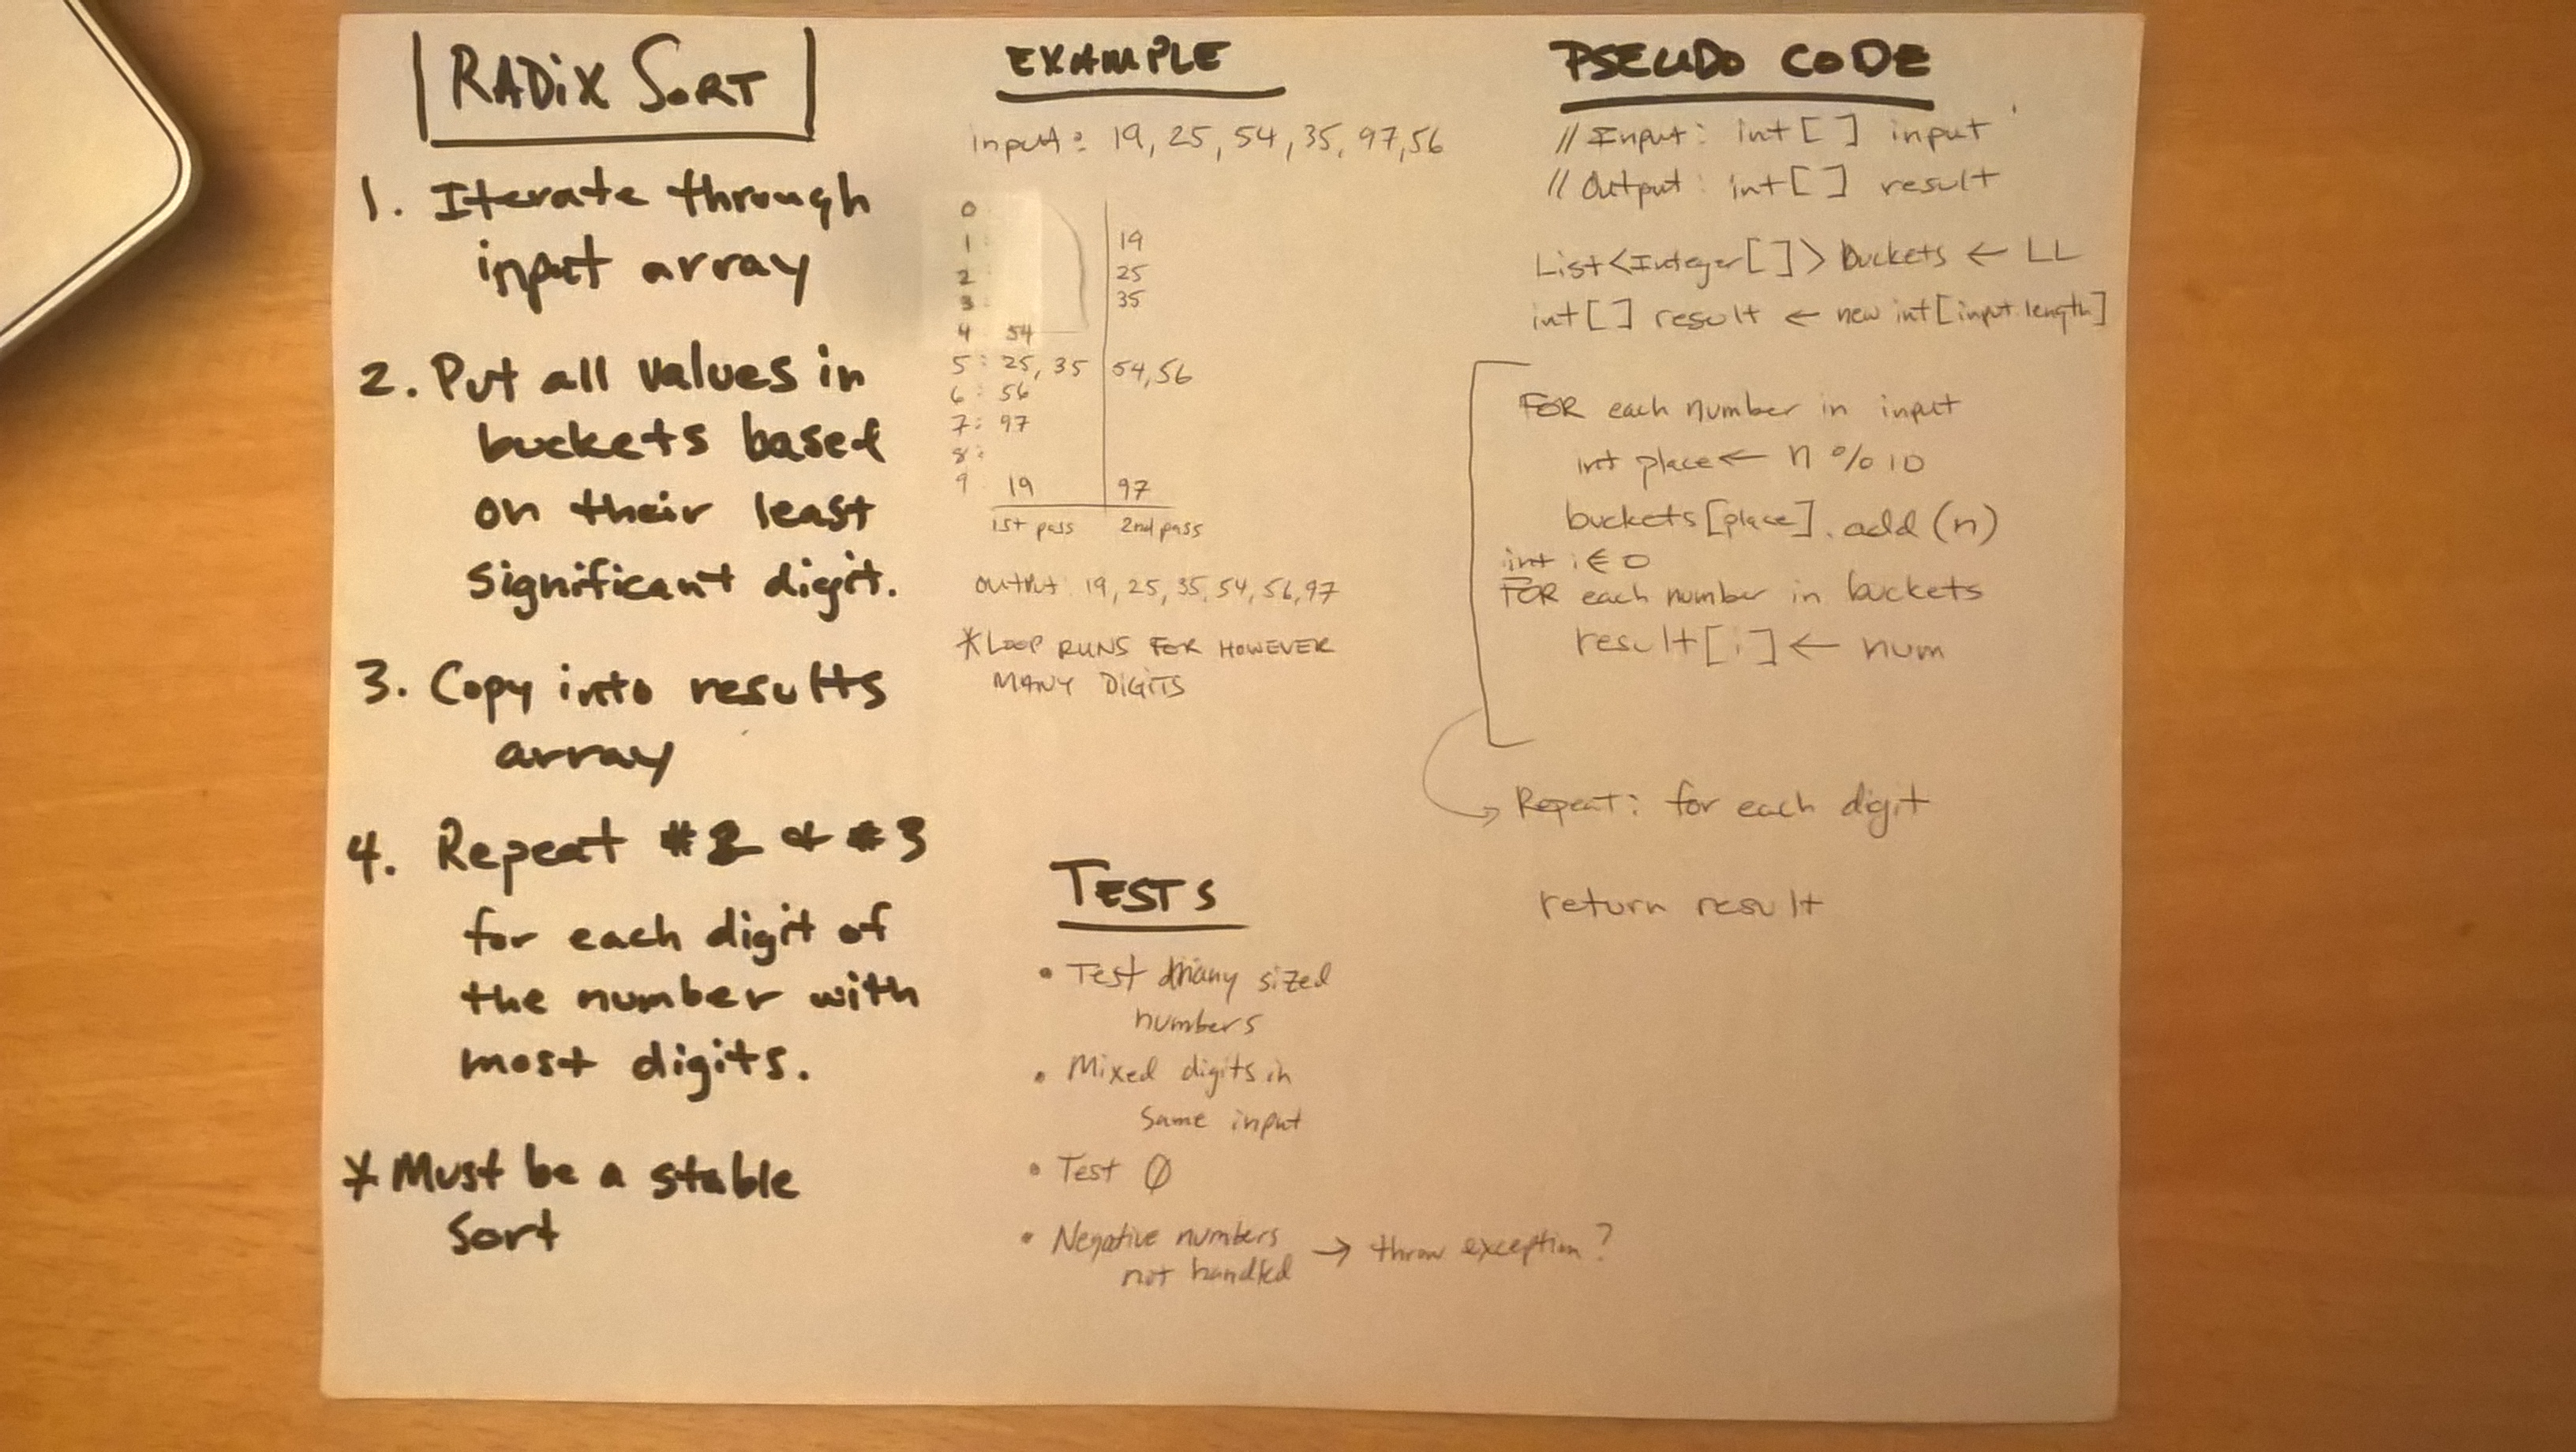 RADIX SORT
1. Iterate through
input array
2. Put all values in
buckets based
on their least
significant digit.
3. Copy into results
array
4. Repeat #2 & #3
for each digit of
the number with
most digits.
* Must be a stable
sort
EXAMPLE
input: 19, 25, 54, 35, 97, 56
0
1: 19
2 25
3 35
4 54
5: 25, 35 54, 56
6: 56
7: 97
8:
9 19 97
1st pass 2nd pass
output: 19, 25, 35, 54, 56, 97
* LOOP RUNS FOR HOWEVER
MANY DIGITS
TESTS
• Test many sized
numbers
• Mixed digits in
same input
• Test Ø
• Negative numbers
not handled → throw exception?
PSEUDO CODE
// Input: int[ ] input
// Output: int[ ] result
List<Integer[ ]> buckets ← LL
int[ ] result ← new int[input.length]
FOR each number in input
int place ← n % 10
buckets[place].add(n)
int i ← 0
FOR each number in buckets
result[i] ← num
Repeat: for each digit
return result